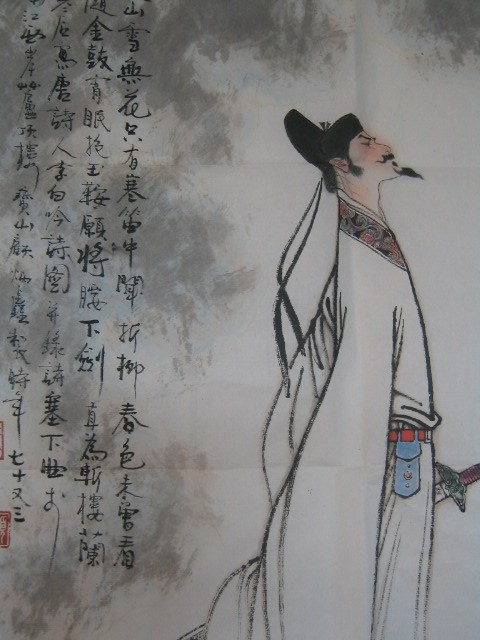 山雪無花只有寒笛中聞折柳春色未曾看
隨金鼓宵眠抱玉鞍願將腰下劍直為斬樓蘭
寫唐詩人李白吟詩圖并錄詩塞下曲於
江岸樓寶山顧炳鑫製時年七十又三